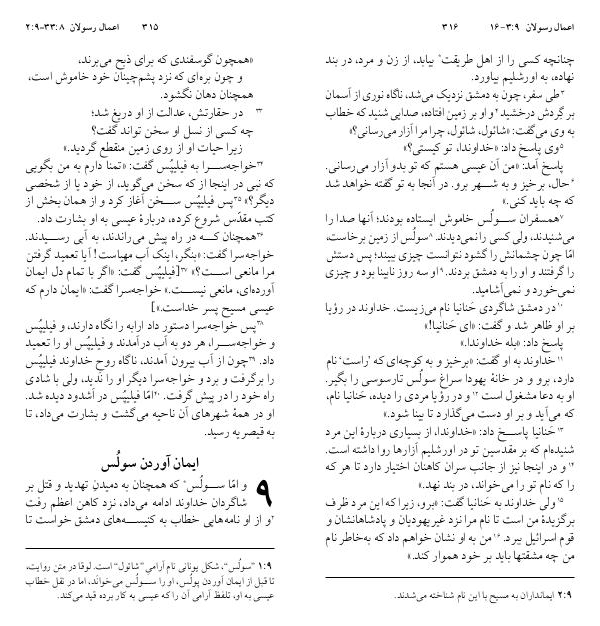 اعمال رسولان ۳۳:۸-۲:۹ ۳۱۵
«همچون گوسفندی که برای ذبح می‌برند،
و چون بره‌ای که نزد پشم‌چینان خود خاموش است،
همچنان دهان نگشود.
۳۳ در حقارتش، عدالت از او دریغ شد؛
چه کسی از نسل او سخن تواند گفت؟
زیرا حیات او از روی زمین منقطع گردید.»
۳۴خواجه‌سرا به فیلیپُس گفت: «تمنا دارم به من بگویی
که نبی در اینجا از که سخن می‌گوید، از خود یا از شخصی
دیگر؟» ۳۵پس فیلیپُس سخن آغاز کرد و از همان بخش از
کتب مقدّس شروع کرده، دربارهٔ عیسی به او بشارت داد.
۳۶همچنان که در راه پیش می‌راندند، به آبی رسیدند.
خواجه‌سرا گفت: «بنگر، اینک آب مهیاست! آیا تعمید گرفتن
مرا مانعی است؟» ۳۷[فیلیپُس گفت: «اگر با تمام دل ایمان
آورده‌ای، مانعی نیست.» خواجه‌سرا گفت: «ایمان دارم که
عیسی مسیح پسر خداست.»]
۳۸پس خواجه‌سرا دستور داد ارابه را نگاه دارند، و فیلیپُس
و خواجه‌سرا، هر دو به آب درآمدند و فیلیپُس او را تعمید
داد. ۳۹چون از آب بیرون آمدند، ناگاه روحِ خداوند فیلیپُس
را برگرفت و برد و خواجه‌سرا دیگر او را ندید، ولی با شادی
راه خود را در پیش گرفت. ۴۰امّا فیلیپُس در اَشدود دیده شد.
او در همهٔ شهرهای آن ناحیه می‌گشت و بشارت می‌داد، تا
به قیصریه رسید.
ایمان آوردن سولُس
۹ و امّا سولُس* که همچنان به دمیدنِ تهدید و قتل بر
شاگردان خداوند ادامه می‌داد، نزد کاهن اعظم رفت
۲و از او نامه‌هایی خطاب به کنیسه‌های دمشق خواست تا
۱:۹ "سولُس"، شکل یونانی نام آرامی "شائول" است. لوقا در متن روایت،
تا قبل از ایمان آوردن پولُس، او را سولُس می‌خواند، اما در نقل خطاب
عیسی به او، تلفظ آرامی آن را که عیسی به کار برده قید می‌کند.
اعمال رسولان ۳:۹-۱۶ ۳۱۶
چنانچه کسی را از اهل طریقت* بیابد، از زن و مرد، در بند
نهاده، به اورشلیم بیاورد.
۳طی سفر، چون به دمشق نزدیک می‌شد، ناگاه نوری از آسمان
بر گِردش درخشید ۴و او بر زمین افتاده، صدایی شنید که خطاب
به وی می‌گفت: «شائول، شائول، چرا مرا آزار می‌رسانی؟»
۵وی پاسخ داد: «خداوندا، تو کیستی؟»
پاسخ آمد: «من آن عیسی هستم که تو بدو آزار می‌رسانی.
۶حال، برخیز و به شهر برو. در آنجا به تو گفته خواهد شد
که چه باید کنی.»
۷همسفران سولُس خاموش ایستاده بودند؛ آنها صدا را
می‌شنیدند، ولی کسی را نمی‌دیدند. ۸سولُس از زمین برخاست،
امّا چون چشمانش را گشود نتوانست چیزی ببیند؛ پس دستش
را گرفتند و او را به دمشق بردند. ۹او سه روز نابینا بود و چیزی
نمی‌خورد و نمی‌آشامید.
۱۰در دمشق شاگردی حَنانیا نام می‌زیست. خداوند در رؤیا
بر او ظاهر شد و گفت: «ای حَنانیا!»
پاسخ داد: «بله خداوندا.»
۱۱خداوند به او گفت: «برخیز و به کوچه‌ای که 'راست' نام
دارد، برو و در خانهٔ یهودا سراغ سولُس تارسوسی را بگیر.
او به دعا مشغول است ۱۲و در رؤیا مردی را دیده، حَنانیا نام،
که می‌آید و بر او دست می‌گذارد تا بینا شود.»
۱۳حَنانیا پاسخ داد: «خداوندا، از بسیاری دربارهٔ این مرد
شنیده‌ام که بر مقدسین تو در اورشلیم آزارها روا داشته است.
۱۴و در اینجا نیز از جانب سران کاهنان اختیار دارد تا هر که
را که نام تو را می‌خواند، در بند نهد.»
۱۵ولی خداوند به حَنانیا گفت: «برو، زیرا که این مرد ظرف
برگزیدهٔ من است تا نام مرا نزد غیریهودیان و پادشاهانشان و
قوم اسرائیل ببرد. ۱۶من به او نشان خواهم داد که به‌خاطر نام
من چه مشقتها باید بر خود هموار کند.»
۲:۹ ایمانداران به مسیح با این نام شناخته می‌شدند.